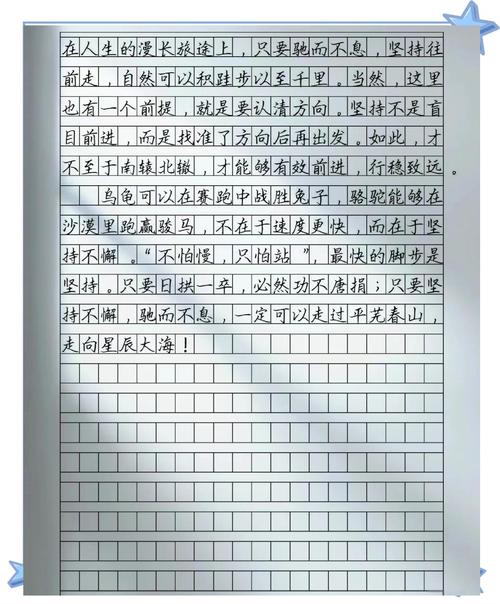 在人生的漫长旅途上，只要驰而不息，坚持往
前走，自然可以积跬步以至千里。当然，这里
也有一个前提，就是要认清方向。坚持不是盲
目前进，而是找准了方向后再出发。如此，才
不至于南辕北辙，才能够有效前进，行稳致远。
乌龟可以在赛跑中战胜兔子，骆驼能够在
沙漠里跑赢骏马，不在于速度更快，而在于坚
持不懈。“不怕慢，只怕站”，最快的脚步是
坚持。只要日拱一卒，必然功不唐捐；只要坚
持不懈，驰而不息，一定可以走过平芜春山，
走向星辰大海！